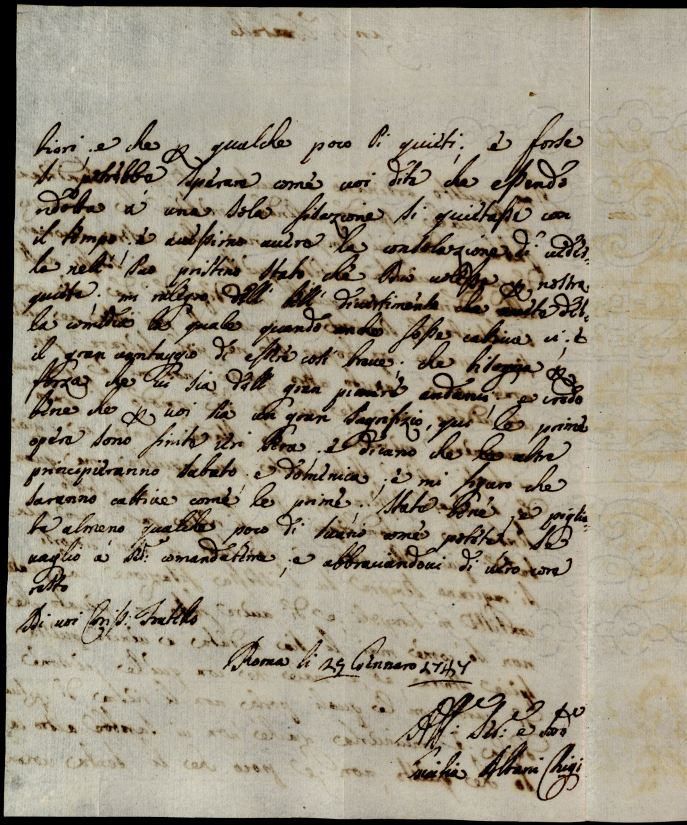 tiori. e che p qualche poco si quieti; e forse
si potrebbe sperare come voi dite che essendo
ridotta a una sola fissazione si quietasse con
il tempo; e avessimo avere la consolazione di veder-
la nell' suo pristino stato che Dio volesse p nostra
quiete. mi ralegro dell' bell' divertimento che avete del-
la comedia la quale quando anche fosse cattiva vi è
il gran vantaggio di essere così breve; che bisogna p
forza che vi sia dell' gran piacere andarvi. e credo
bene che p voi sia un gran sagrifizio, qui le prime
opere sono finite ieri sera. e dicano che le altre
principieranno sabato e domenica; e mi figuro che
saranno cattive come le prime; state bene; e piglia-
te almeno qualche poco di come potete; se
vaglio a ser: comandatemi; e abbraciandovi di vero core
resto
Di voi Cariss: Fratello
Roma li 25 Gennaro 1747
Aff: Ser: e Sor
Giulia Albani Chigi